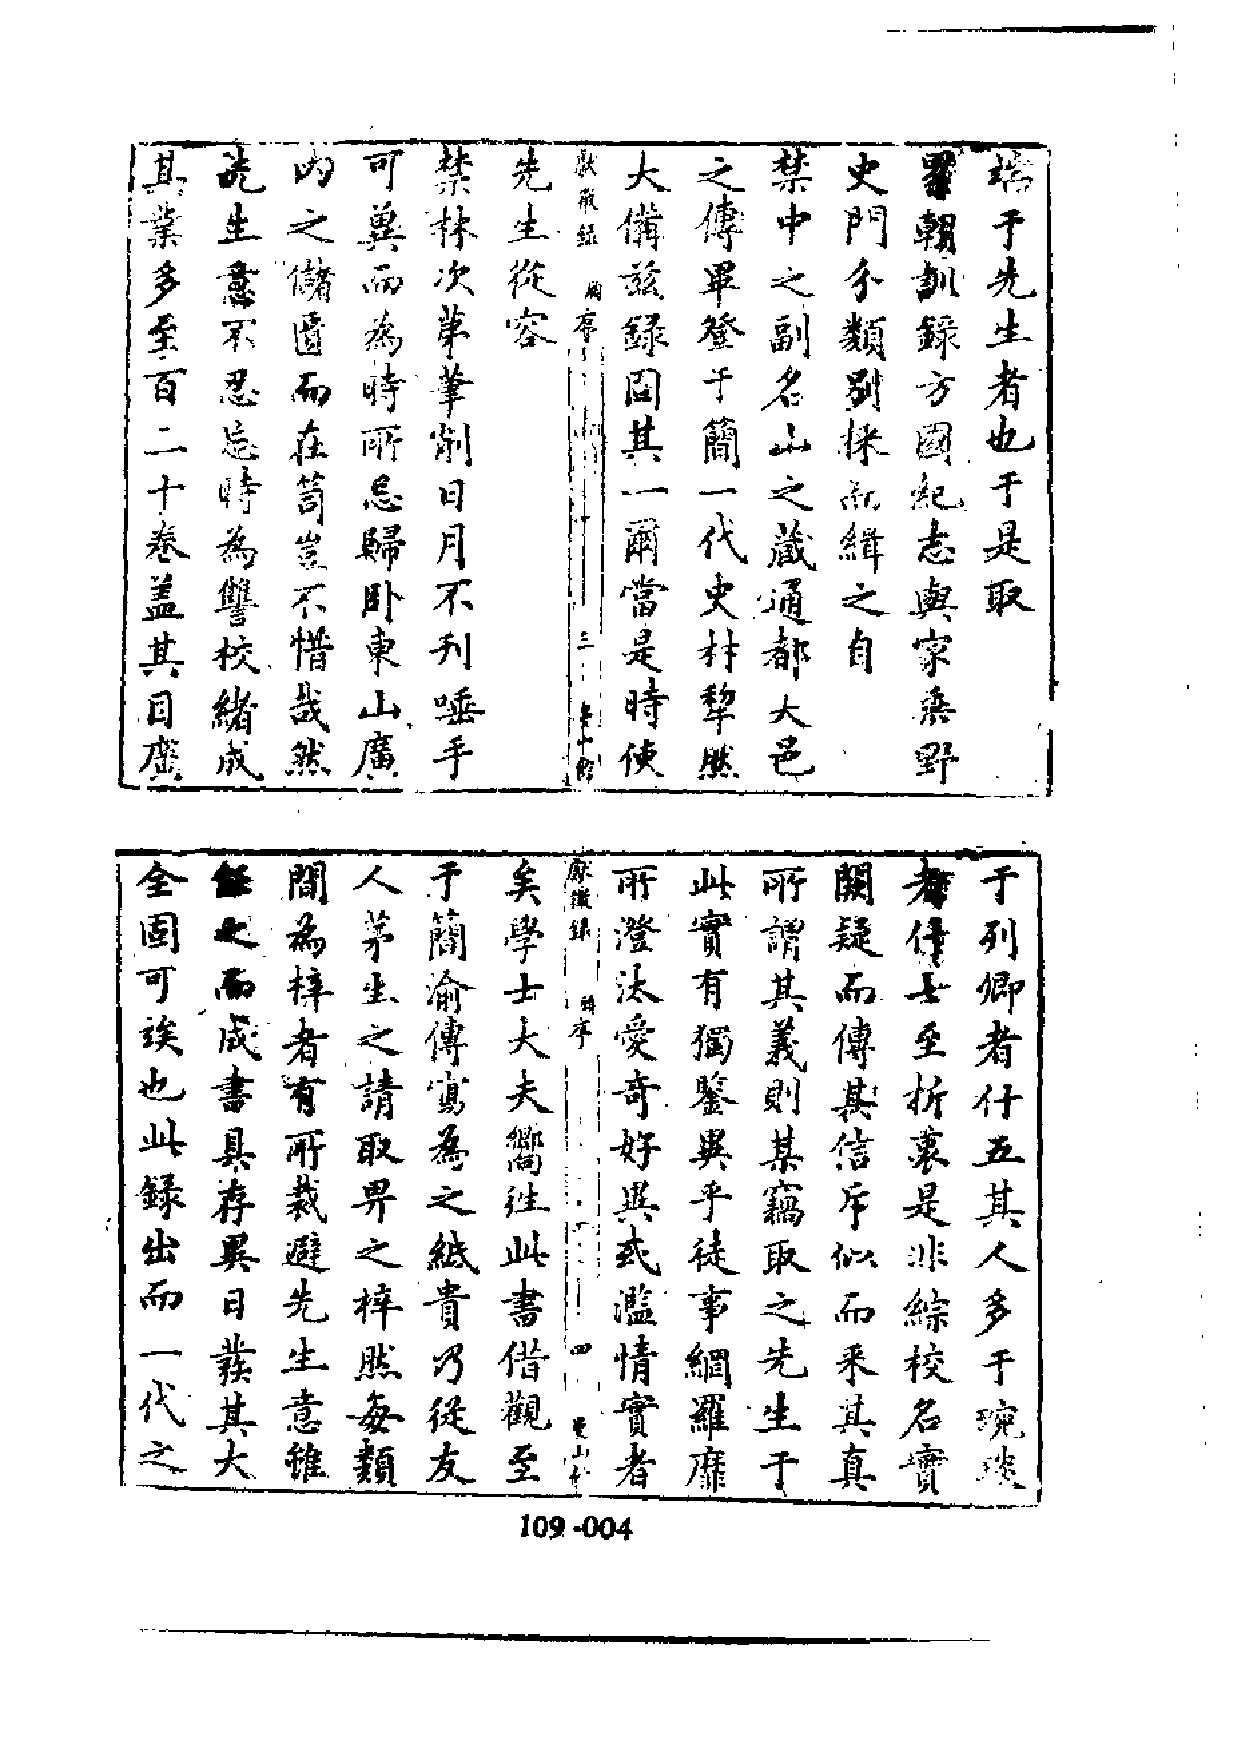 端于先生者也于是取
累朝訓録方國紀志與家乗野
史門分類别採而緝之自
禁中之副名山之蔵通都大邑
之傳畢登于簡一代史材犁然
大備茲録固其一爾當是時使
獻徵録 序 三
先生從容
禁林次苐筆削日月不刋唾手
可兾而為時所忌歸卧東山廣
内之儲匱而在笥豈不惜哉然
先生意不忍忘時為讐校緒成
其業多至百二十卷盖其目廑
于列卿者什五其人多于琬琰
者什七至折衷是非綜校名實
闕疑而傳其信斥似而釆其真
所謂其義則某竊取之先生于
此實有獨鑒異乎徒事網羅靡
所澄汰愛奇好異或濫情實者
獻徵録 序 四
矣學士大夫嚮往此書借觀至
于簡渝傳寫為之紙貴乃従友
人茅生之請取畀之梓然每類
間為梓者有所裁避先生意雖
之而成書具存異日蕟其大
全固可竢也此録出而一代之
109-004